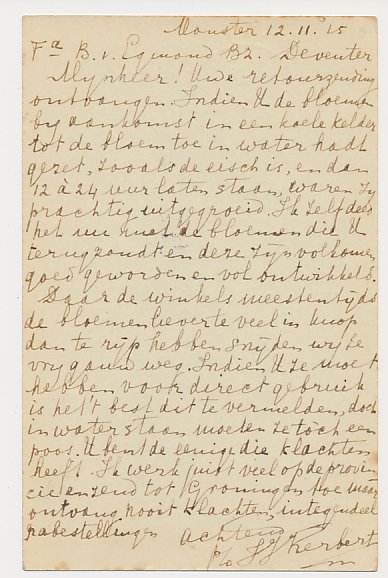 Monster 12.11.15
Fa B. v. Egmond Bz. Deventer
Mynheer! Uwe retourzending
ontvangen. Indien U de bloemen
by aankomst in een koele kelder
tot de bloem toe in water hadt
gezet, zooals de eisch is, en dan
12 à 24 uur laten staan, waren zy
prachtig uitgegroeid. Ik zelf deed
het nu met de bloemen die U
terugzondt en deze zyn volkomen
goed geworden en vol ontwikkeld.
Daar de winkels meestentyds
de bloemen liever te veel in knop
dan te ryp hebben snyden wy ze
vry gauw weg. Indien U ze moet
hebben voor direct gebruik
is het best dit te vermelden, doch
in water staan moeten ze toch een
poos. U bent de eenige die klachten
heeft. Ik werk juist veel op de provin
cie en zend tot Groningen toe maar
ontvang nooit klachten, integendeel
nabestellingen achtend
p/o Herbert